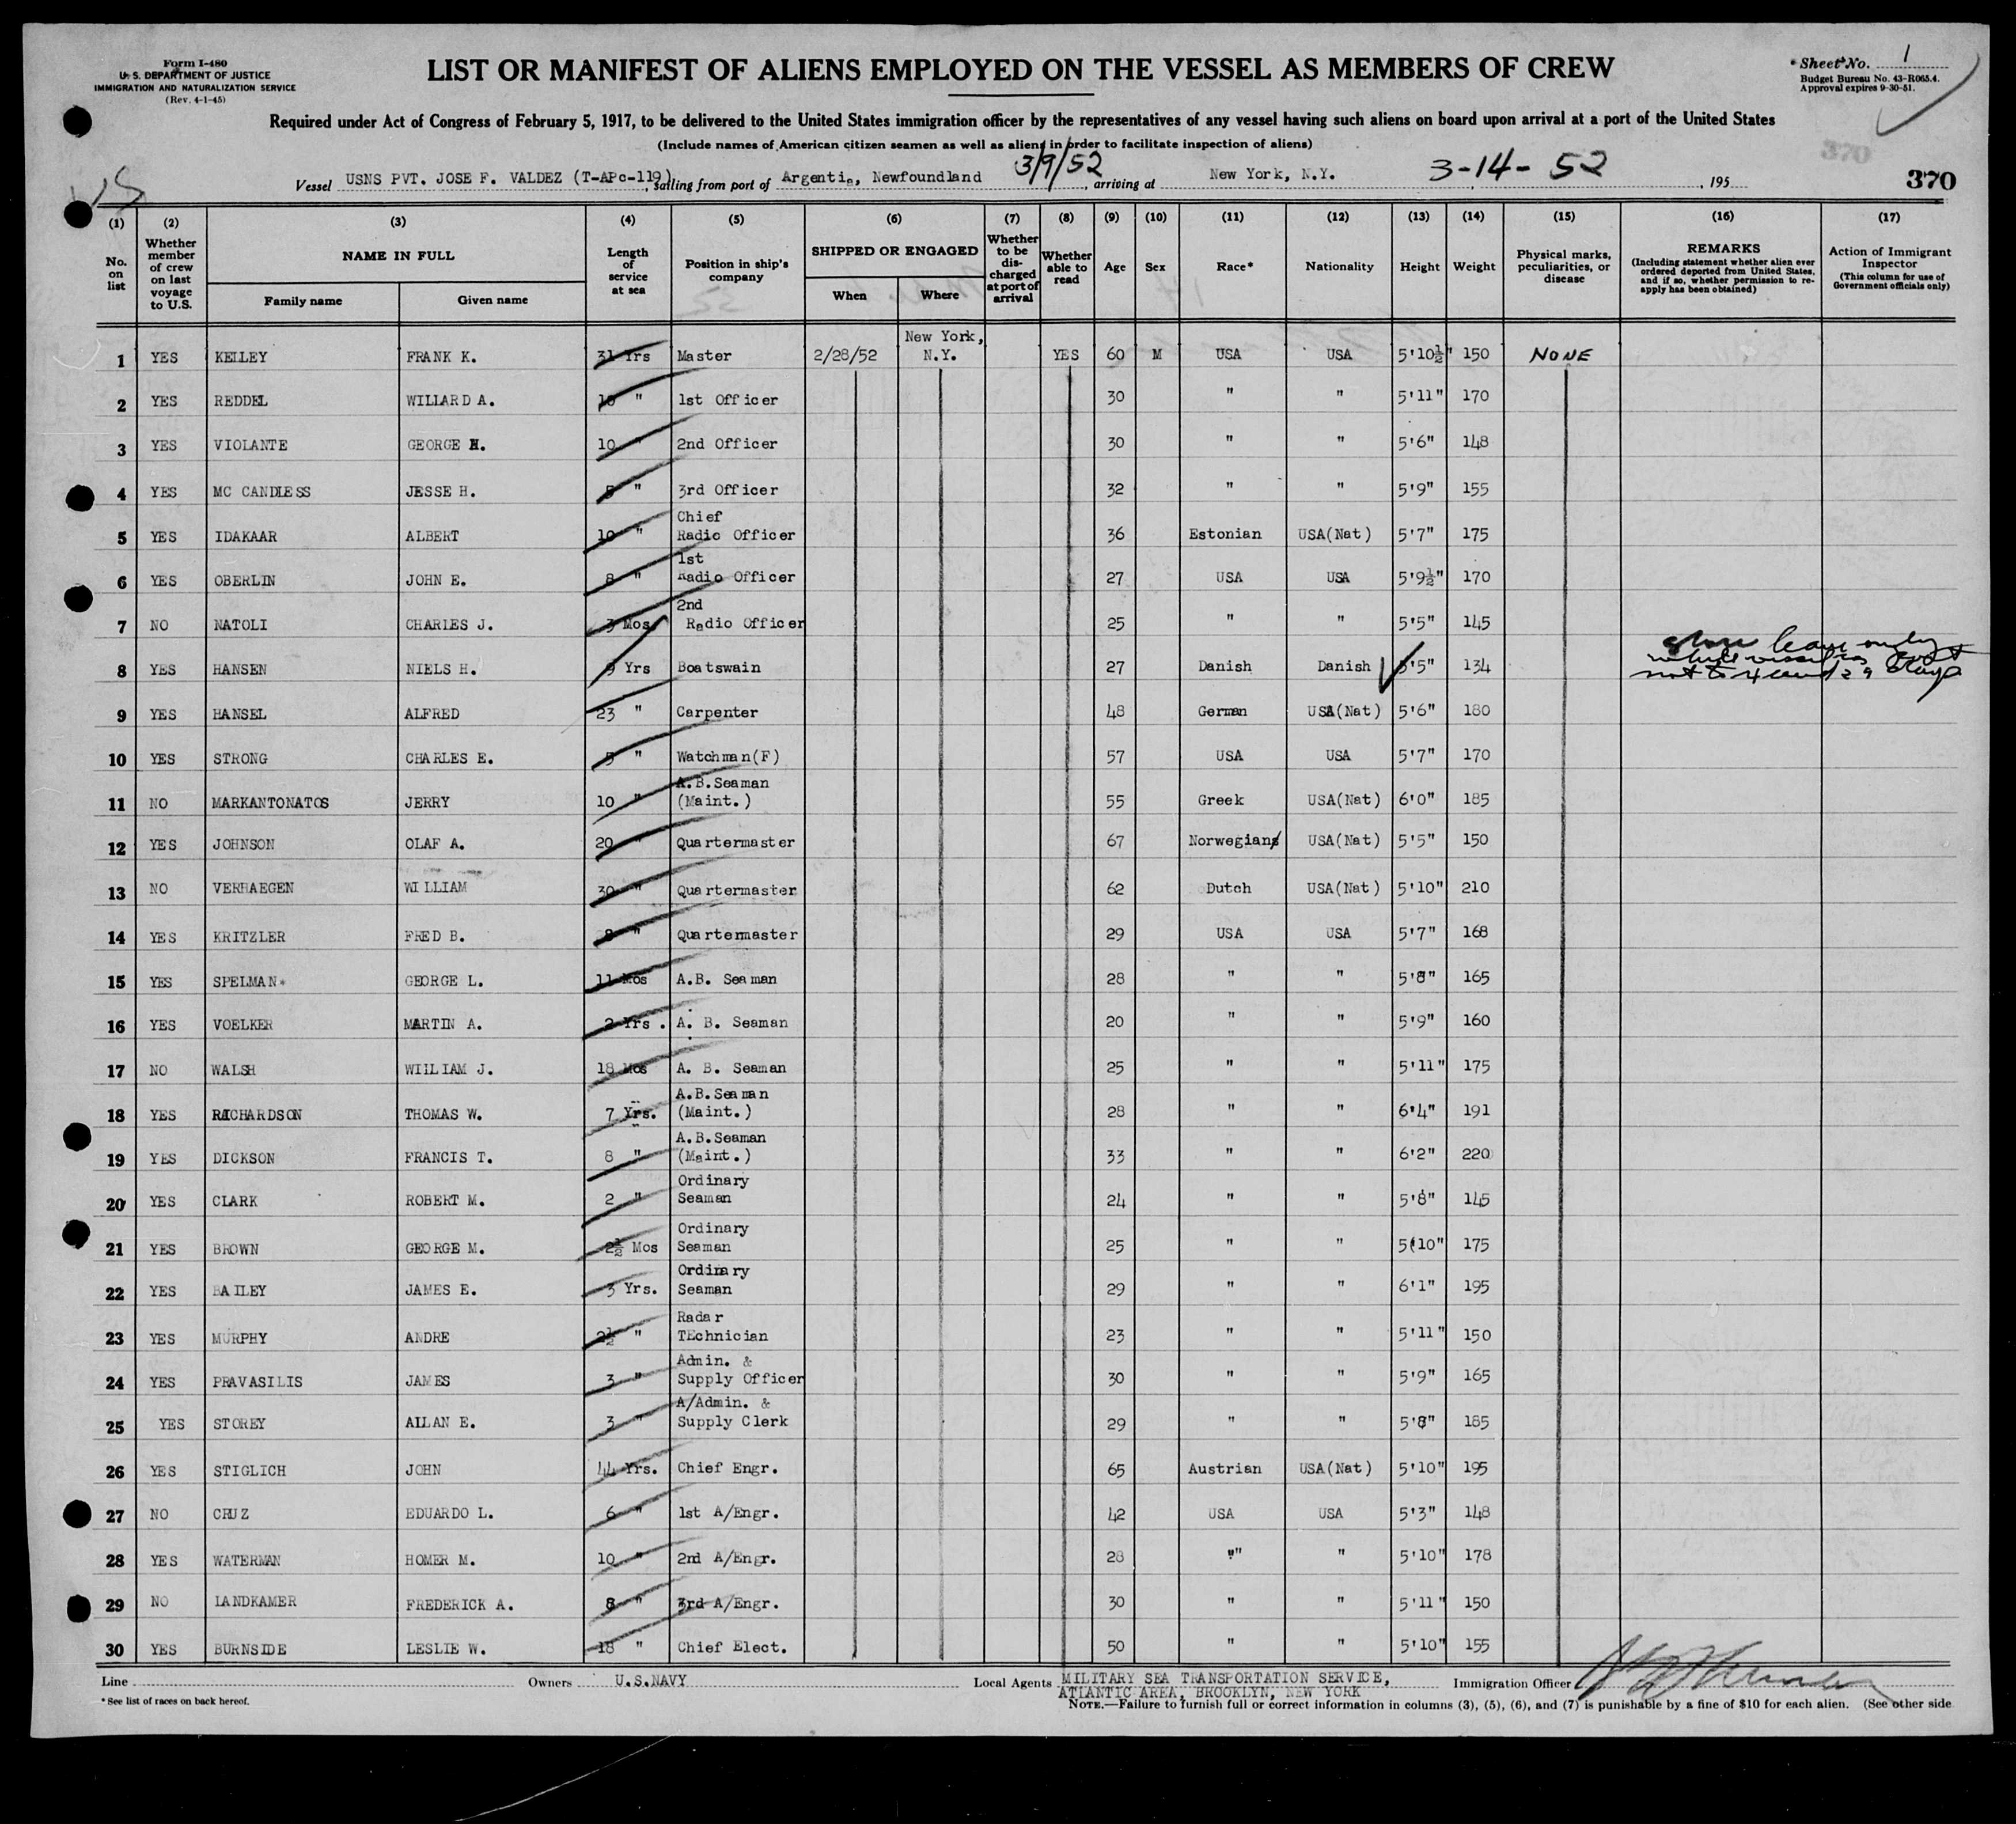 Form I-480
U. S. DEPARTMENT OF JUSTICE
IMMIGRATION AND NATURALIZATION SERVICE
(Rev. 4-1-45)
LIST OR MANIFEST OF ALIENS EMPLOYED ON THE VESSEL AS MEMBERS OF CREW
Sheet No. 1
Budget Bureau No. 43-R065.4.
Approval expires 9-30-51.
Required under Act of Congress of February 5, 1917, to be delivered to the United States immigration officer by the representatives of any vessel having such aliens on board upon arrival at a port of the United States
(Include names of American citizen seamen as well as aliens in order to facilitate inspection of aliens)
370
Vessel USNS PVT. JOSE F. VALDEZ (T-APc-119), sailing from port of Argentia, Newfoundland 3/9/52, arriving at New York, N.Y. 3-14-52, 195 370
(1) (2) (3) (4) (5) (6) (7) (8) (9) (10) (11) (12) (13) (14) (15) (16) (17)
No. on list
Whether member of crew on last voyage to U.S.
NAME IN FULL
Family name Given name
Length of service at sea
Position in ship's company
SHIPPED OR ENGAGED
When Where
Whether to be discharged at port of arrival
Whether able to read
Age Sex Race* Nationality Height Weight
Physical marks, peculiarities, or disease
REMARKS
(Including statement whether alien ever ordered deported from United States, and if so, whether permission to reapply has been obtained)
Action of Immigrant Inspector
(This column for use of Government officials only)
1 YES KELLEY FRANK K. 31 Yrs Master 2/28/52 New York, N.Y. YES 60 M USA USA 5'10½" 150 NONE
2 YES REDDEL WILLARD A. 10 " 1st Officer 30 " " 5'11" 170
3 YES VIOLANTE GEORGE H. 10 " 2nd Officer 30 " " 5'6" 148
4 YES MC CANDLESS JESSE H. 5 " 3rd Officer 32 " " 5'9" 155
5 YES IDAKAAR ALBERT 10 " Chief Radio Officer 36 Estonian USA(Nat) 5'7" 175
6 YES OBERLIN JOHN E. 8 " 1st Radio Officer 27 USA USA 5'9½" 170
7 NO NATOLI CHARLES J. 3 Mos 2nd Radio Officer 25 " " 5'5" 145
8 YES HANSEN NIELS H. 9 Yrs Boatswain 27 Danish Danish 5'5" 134 shore leave only while vessel in port not to exceed 29 days
9 YES HANSEL ALFRED 23 " Carpenter 48 German USA(Nat) 5'6" 180
10 YES STRONG CHARLES E. 5 " Watchman(F) 57 USA USA 5'7" 170
11 NO MARKANTONATOS JERRY 10 " A.B.Seaman (Maint.) 55 Greek USA(Nat) 6'0" 185
12 YES JOHNSON OLAF A. 20 " Quartermaster 67 Norwegian USA(Nat) 5'5" 150
13 NO VERHAEGEN WILLIAM 30 " Quartermaster 62 Dutch USA(Nat) 5'10" 210
14 YES KRITZLER FRED B. 8 " Quartermaster 29 USA USA 5'7" 168
15 YES SPELMAN* GEORGE L. 11 Mos A.B. Seaman 28 " " 5'8" 165
16 YES VOELKER MARTIN A. 2 Yrs. A. B. Seaman 20 " " 5'9" 160
17 NO WALSH WILLIAM J. 18 Mos A. B. Seaman 25 " " 5'11" 175
18 YES RICHARDSON THOMAS W. 7 Yrs. A.B.Seaman (Maint.) 28 " " 6'4" 191
19 YES DICKSON FRANCIS T. 8 " A.B.Seaman (Maint.) 33 " " 6'2" 220
20 YES CLARK ROBERT M. 2 " Ordinary Seaman 24 " " 5'8" 145
21 YES BROWN GEORGE M. 2½ Mos Ordinary Seaman 25 " " 5(10" 175
22 YES BAILEY JAMES E. 3 Yrs. Ordinary Seaman 29 " " 6'1" 195
23 YES MURPHY ANDRE 2½ " Radar Technician 23 " " 5'11" 150
24 YES PRAVASILIS JAMES 3 " Admin. & Supply Officer 30 " " 5'9" 165
25 YES STOREY ALLAN E. 3 " A/Admin. & Supply Clerk 29 " " 5'8" 185
26 YES STIGLICH JOHN 44 Yrs. Chief Engr. 65 Austrian USA(Nat) 5'10" 195
27 NO CRUZ EDUARDO L. 6 " 1st A/Engr. 42 USA USA 5'3" 148
28 YES WATERMAN HOMER M. 10 " 2nd A/Engr. 28 " " 5'10" 178
29 NO LANDKAMER FREDERICK A. 8 " 3rd A/Engr. 30 " " 5'11" 150
30 YES BURNSIDE LESLIE W. 18 " Chief Elect. 50 " " 5'10" 155
Line Owners U.S.NAVY Local Agents MILITARY SEA TRANSPORTATION SERVICE, ATLANTIC AREA, BROOKLYN, NEW YORK Immigration Officer
*See list of races on back hereof.
NOTE.—Failure to furnish full or correct information in columns (3), (5), (6), and (7) is punishable by a fine of $10 for each alien. (See other side